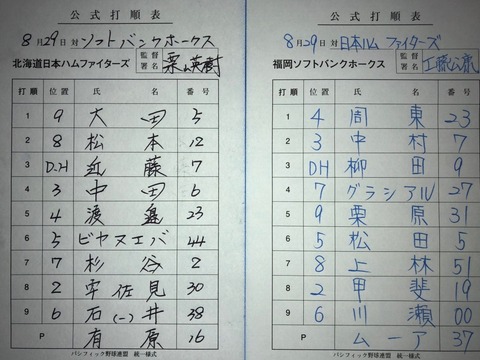 公式打順表
8月29日 対 ソフトバンクホークス
北海道日本ハムファイターズ 監督署名 栗山英樹
打順 位置 氏名 番号
1 9 大田 5
2 8 松本 12
3 D.H 近藤 7
4 3 中田 6
5 4 渡邉 23
6 5 ビヤヌエバ 44
7 7 杉谷 2
8 2 宇佐見 30
9 6 石井(一) 38
P 有原 16
パシフィック野球連盟 統一様式
公式打順表
8月29日 対 日本ハム ファイターズ
福岡ソフトバンクホークス 監督署名 工藤公康
打順 位置 氏名 番号
1 4 周東 23
2 3 中村 7
3 DH 柳田 9
4 7 グラシアル 27
5 9 栗原 31
6 5 松田 5
7 8 上林 51
8 2 甲斐 19
9 6 川瀬 00
P ムーア 37
パシフィック野球連盟 統一様式